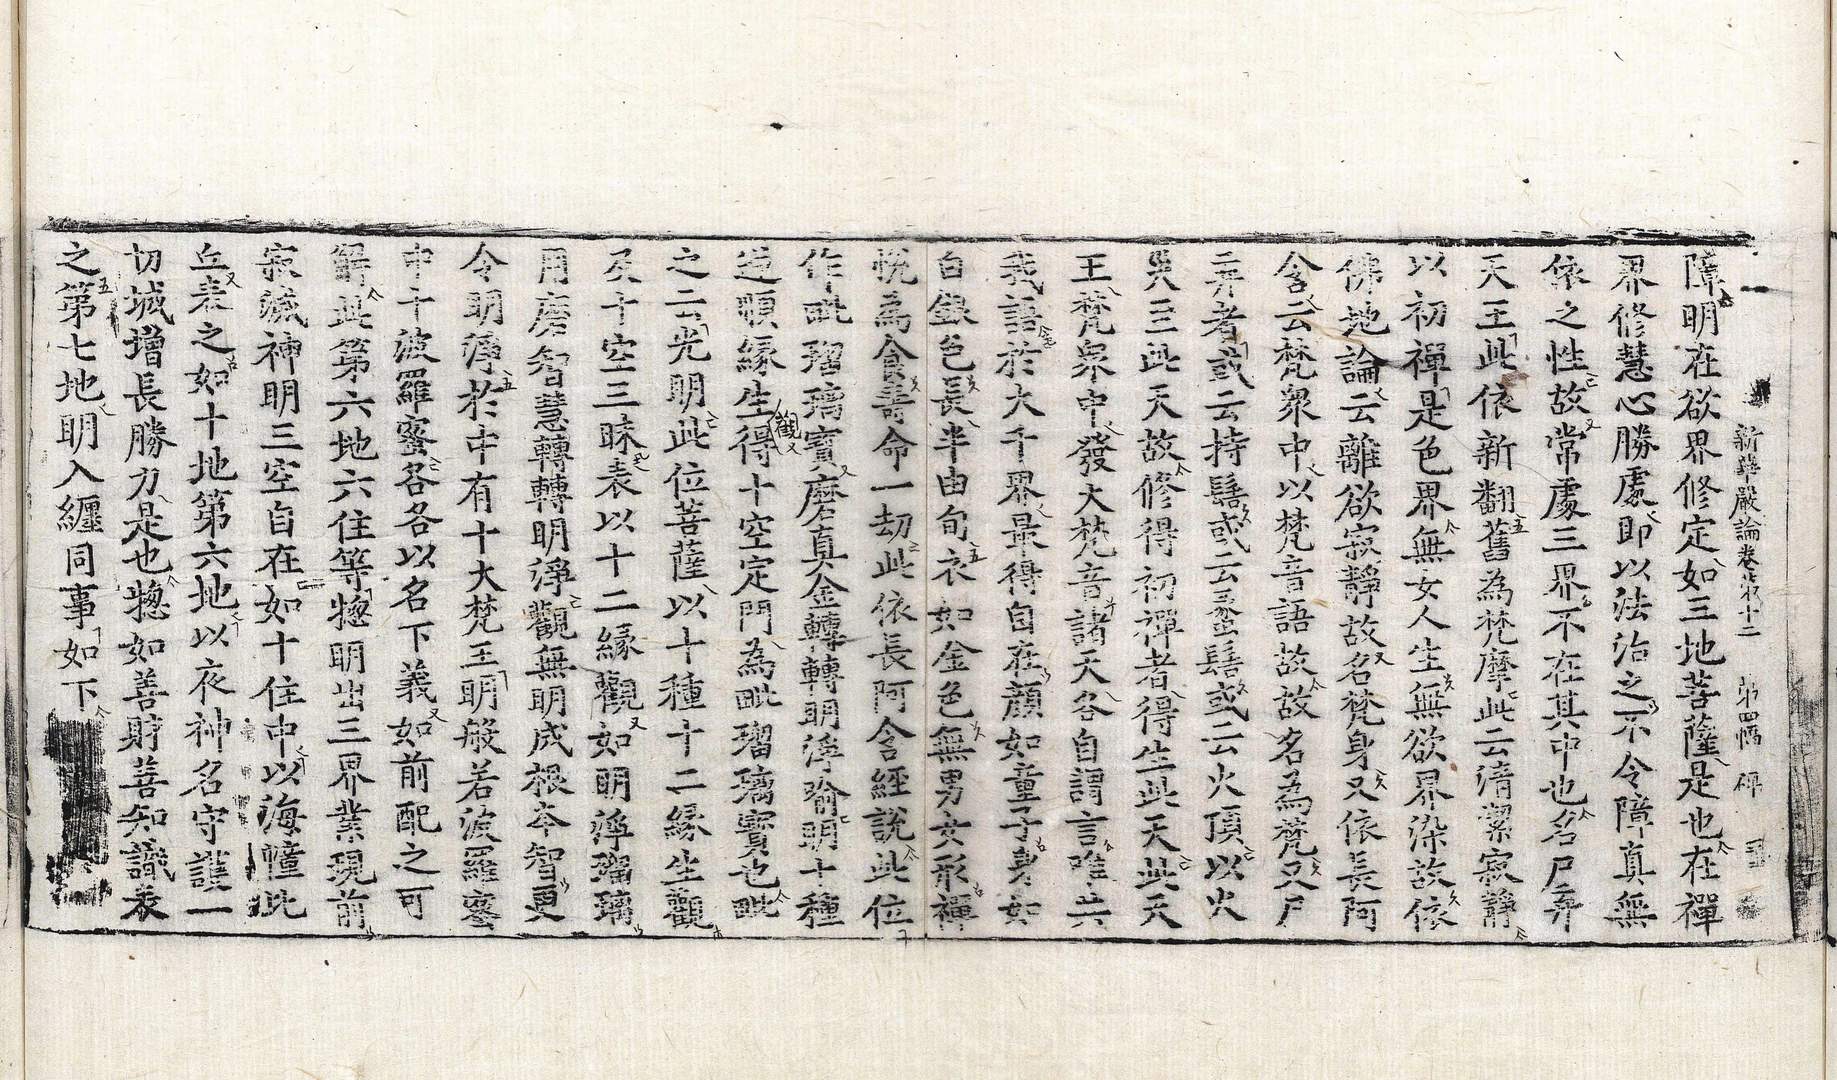 新華嚴論卷苐十二 苐四幅 碑
障明在欲界修定如三地菩薩是也在禪
界修慧心勝處即以法治之不令障真無
依之性故常處三界不在其中也名尸弃
天王此依新翻舊為梵摩此云清潔寂静
以初禪是色界無女人生無欲界染故依
佛地論云離欲寂靜故名梵身又依長阿
含云梵衆中以梵音語故故名為梵又尸
弃者或云持髻或云螺髻或云火頂以火
灾三此天故修得初禪者得生此天此天
王梵衆中發大梵音諸天各自謂言唯共
我語於大千界最得自在顔如童子身如
白銀色長半由旬衣如金色無男女形禪
悅為食壽命一劫此依長阿含經說此位
作毗瑠璃寶磨真金轉轉明淨喻明十種
逆順緣生觀得十空定門為毗瑠璃寶也毗
之云光明此位菩薩以十種十二緣生觀
及十空三昧表以十二緣觀如明淨瑠璃
用磨智慧轉轉明淨觀無明成根夲智更
令明淨於中有十大梵王明般若波羅蜜
中十波羅蜜各各以名下義如前配之可
解此第六地六住等惣明出三界業現前
寂滅神明三空自在如十住中以海幢比
丘表之如十地第六地以夜神名守護一
切城增長勝力是也惣如善財善知識表
之第七地明入纏同事如下